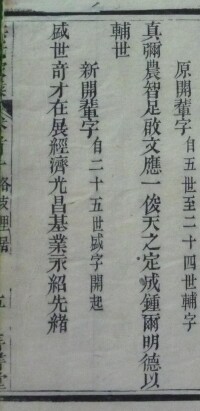 原開輩字自五世至二十四世輔字
真彌農智足敢文應一俊天之定戒鍾爾明德以
輔世
新開輩字自二十五世盛字開起
盛世奇才在展經濟光昌基業永紹先緒